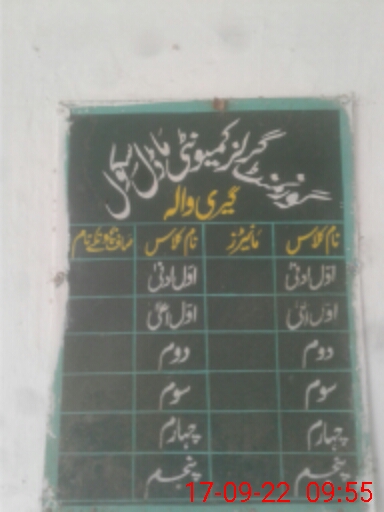 گورنمنٹ گرلز کمیونٹی ماڈل سکول
گیری والہ
نام کلاس مانیٹرز نام کلاس
اوّل ادنیٰ اوّل ادنیٰ
اوّل اعلیٰ اوّل اعلیٰ
دوم دوم
سوم سوم
چہارم چہارم
پنجم پنجم
17-09-22 09:55